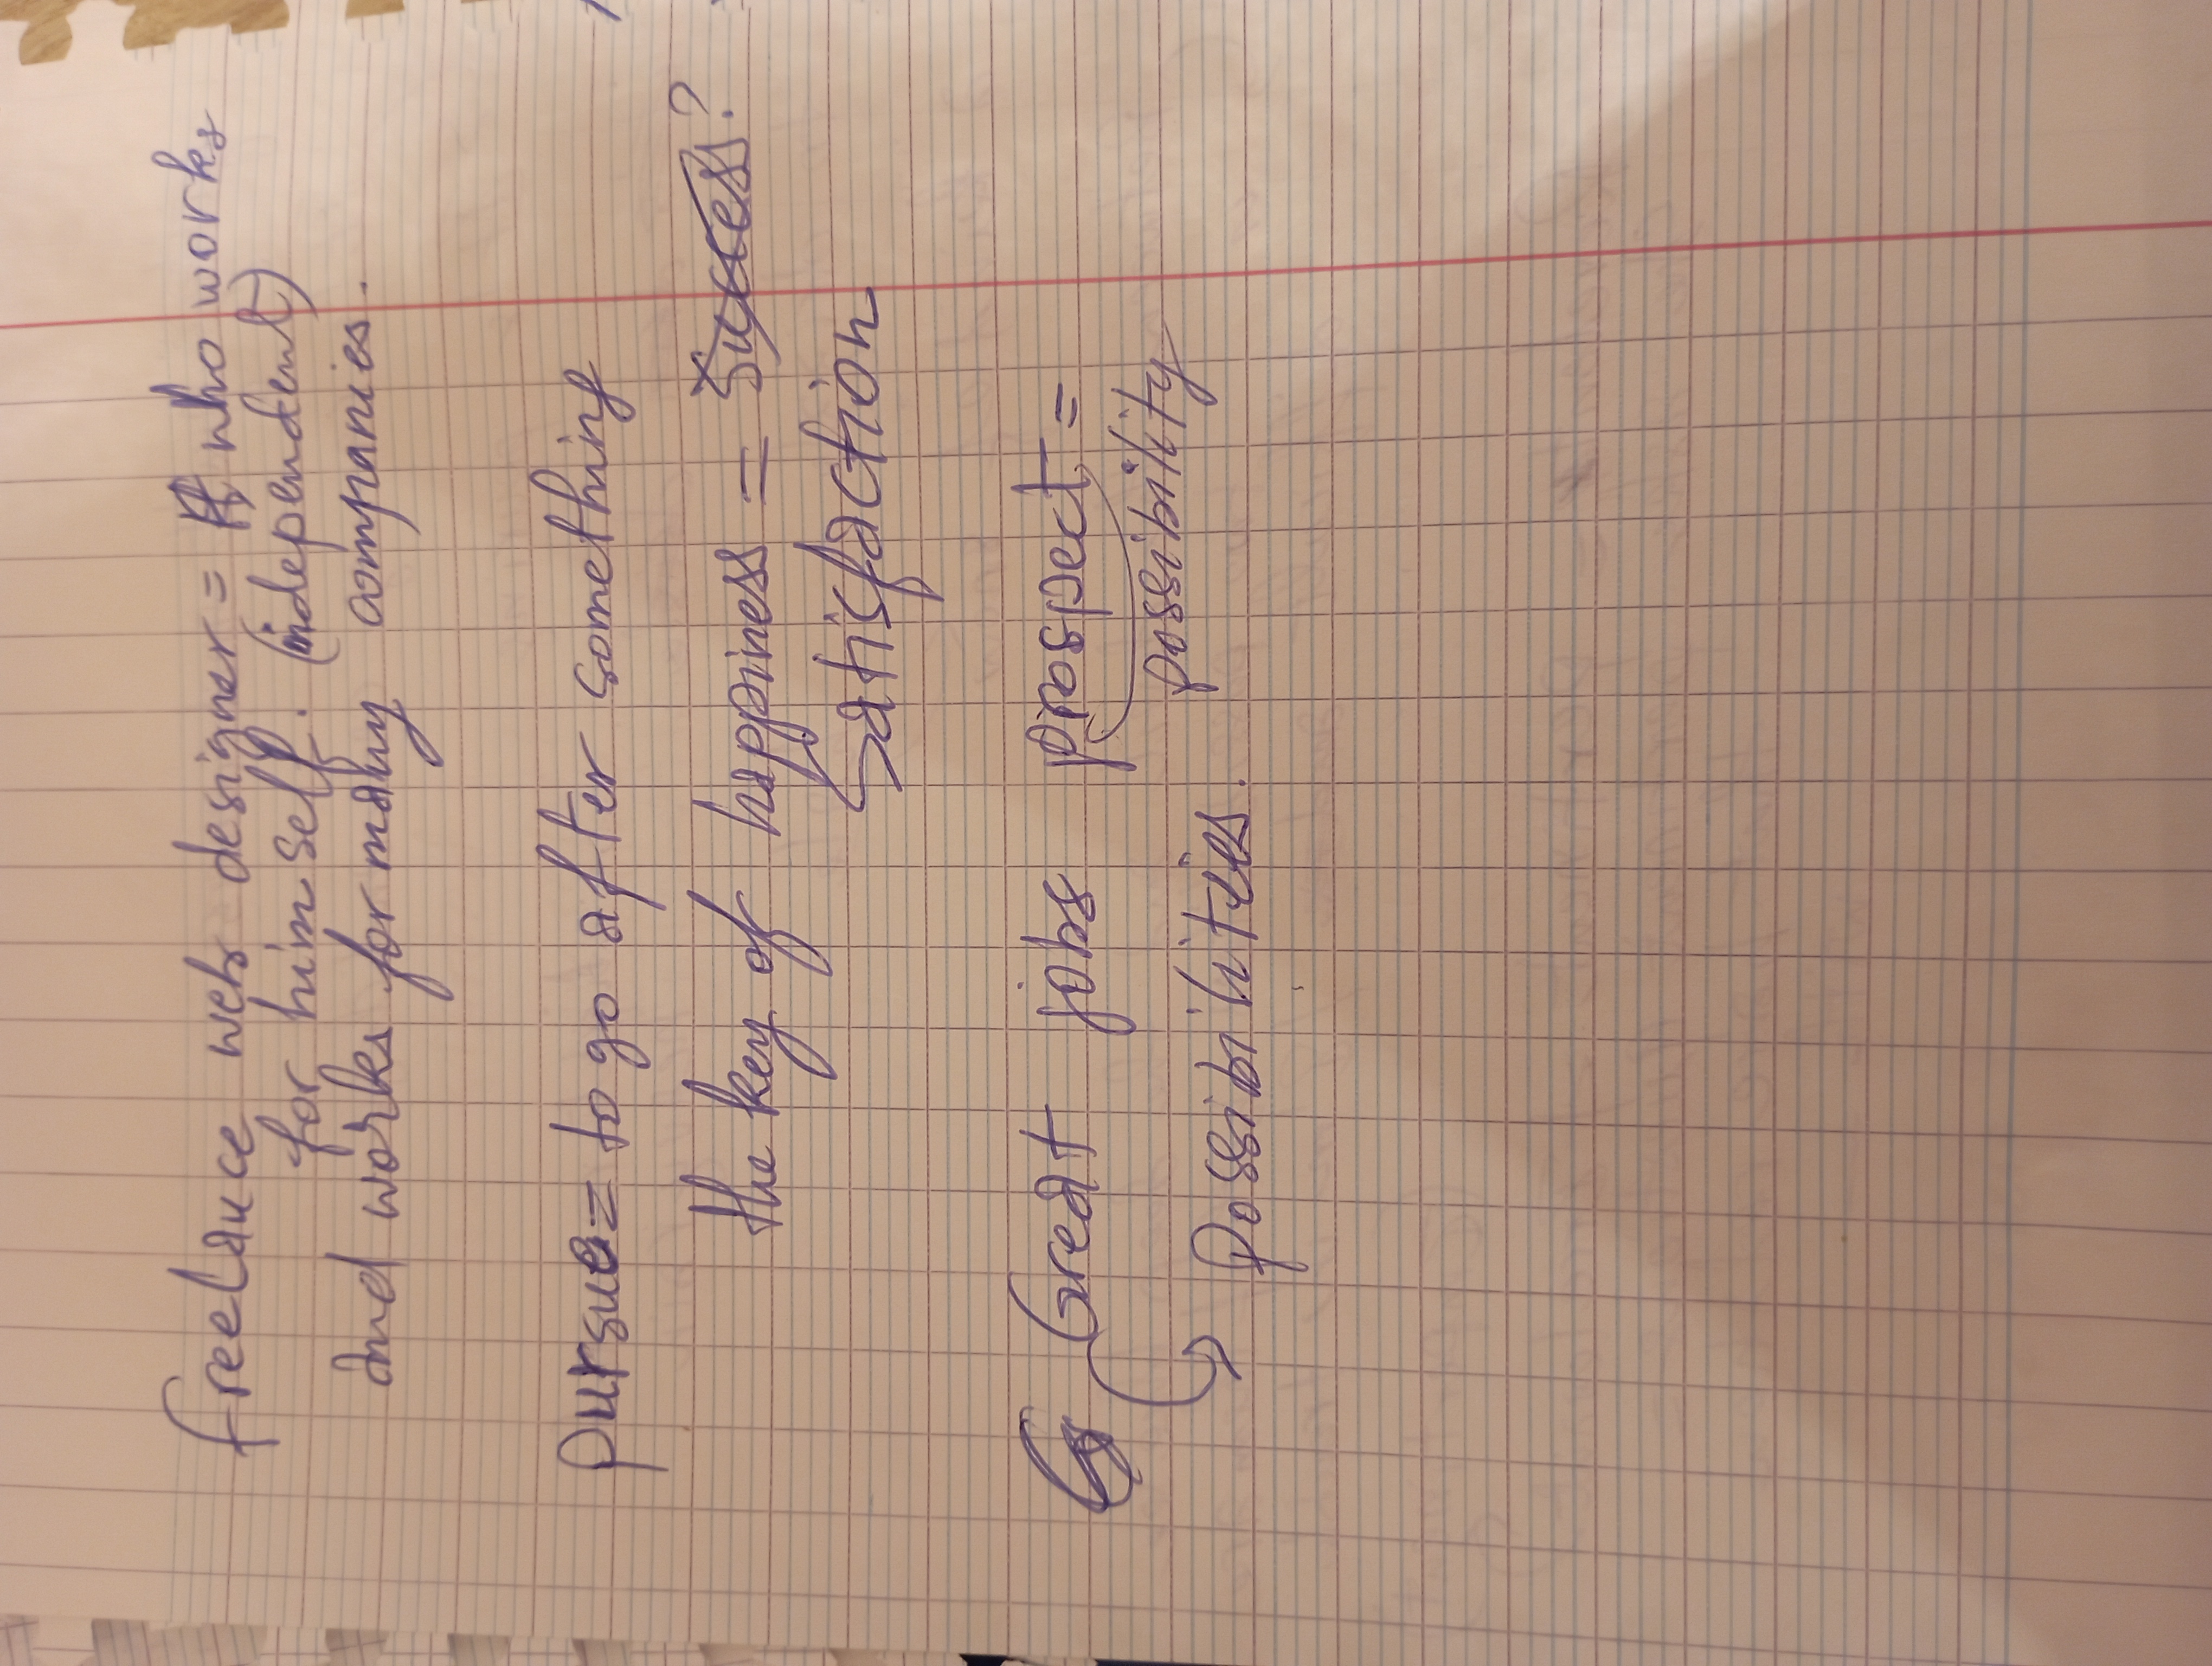 freelance web designer = who works
for him self. (independent)
and works for many companies.
pursue = to go after something
the key of happiness = Success?
satisfaction
Great jobs prospect =
possibility
Possibilities.